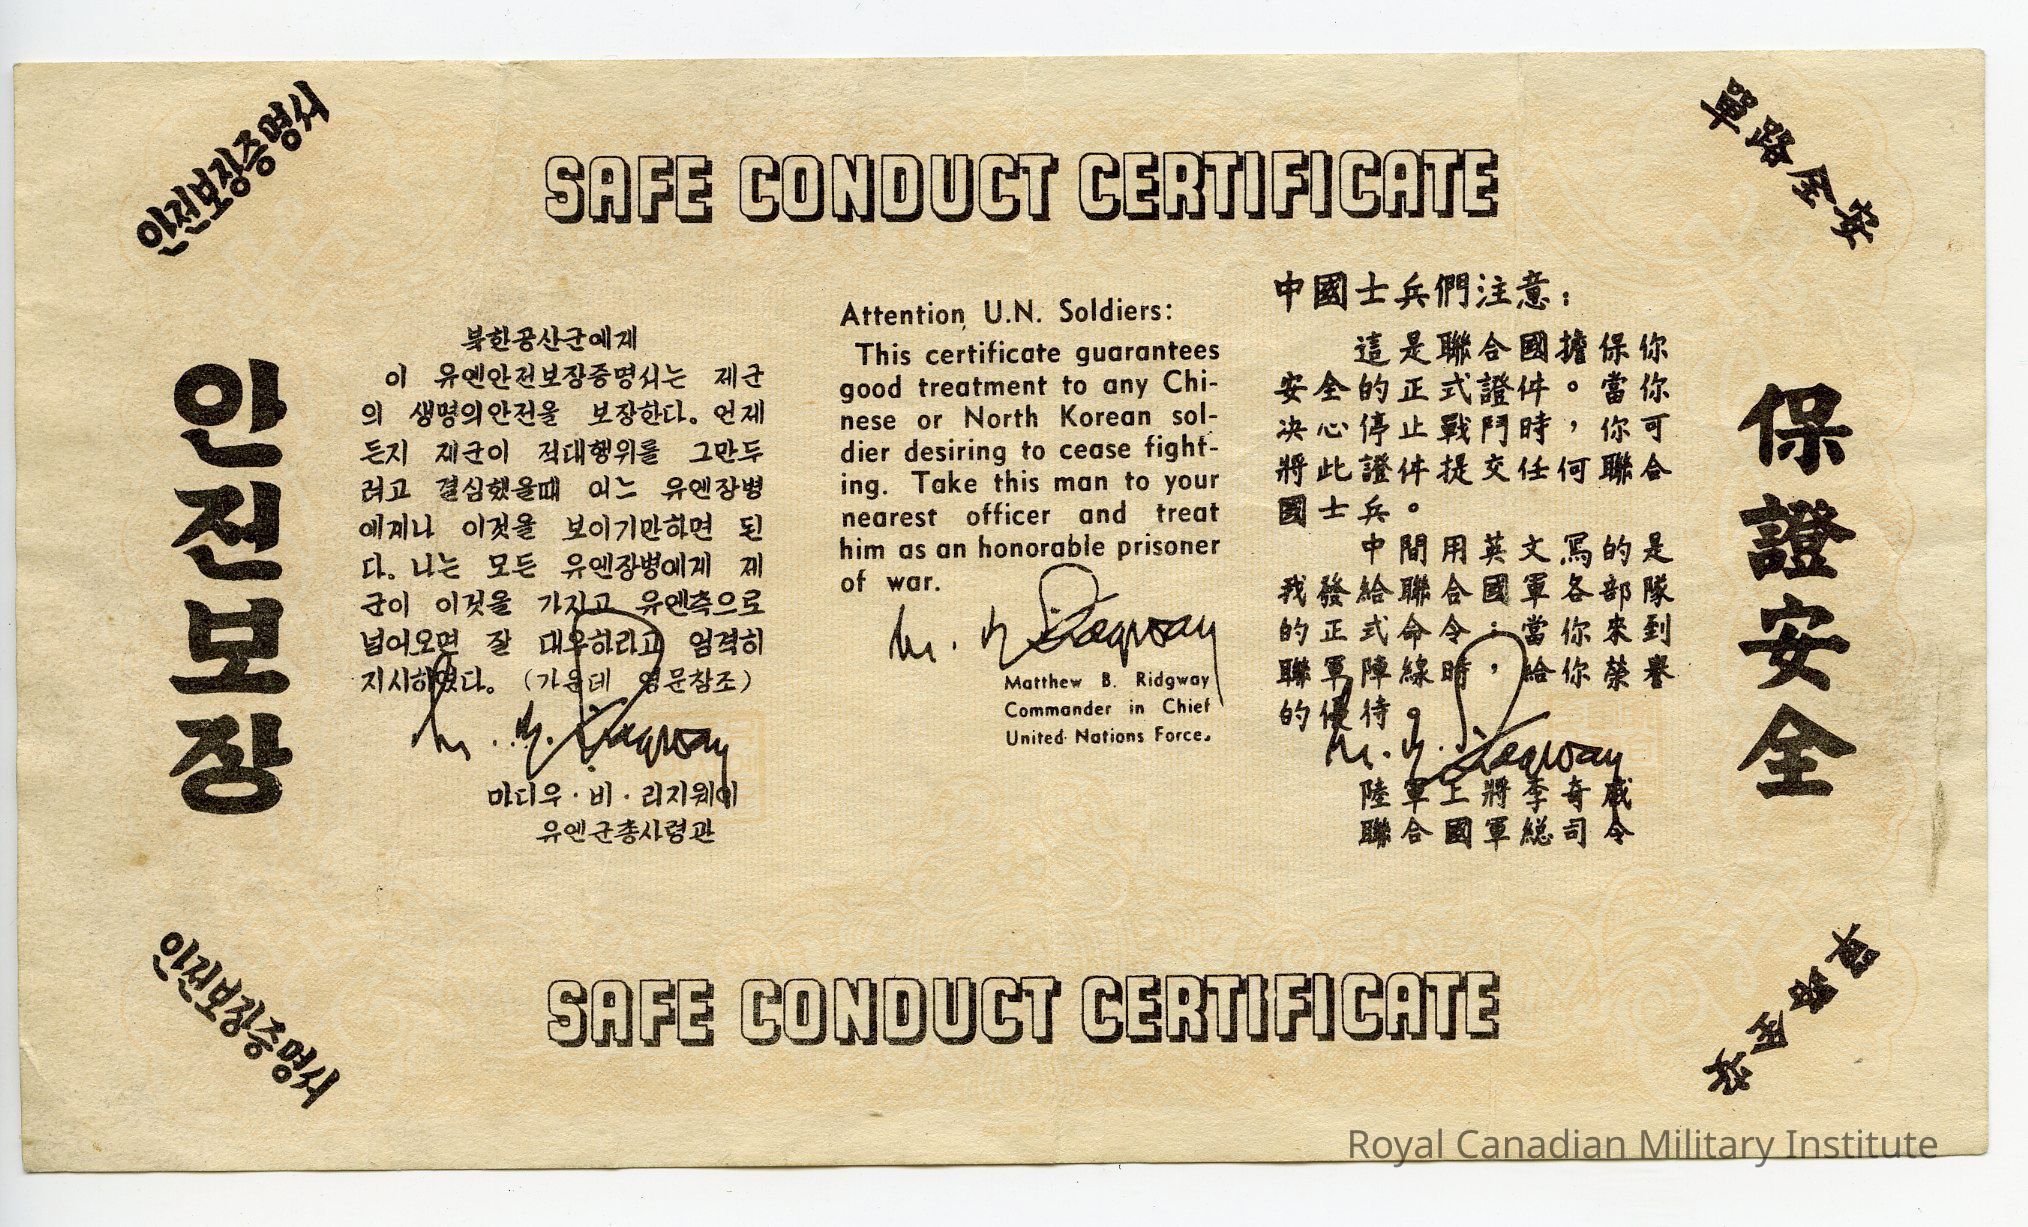 안전보장증명서
SAFE CONDUCT CERTIFICATE
單路全安
안전보장
북한공산군에게
이 유엔안전보장증명서는 제군
의 생명의안전을 보장한다. 언제
든지 제군이 적대행위를 그만두
려고 결심했을때 어느 유엔장병
에게나 이것을 보이기만하면 된
다. 나는 모든 유엔장병에게 제
군이 이것을 가지고 유엔측으로
넘어오면 잘 대우하라고 엄격히
지시하였다. (가운데 영문참조)
마디우·비·리지웨이
유엔군총사령관
Attention U.N. Soldiers:
This certificate guarantees
good treatment to any Chi-
nese or North Korean sol-
dier desiring to cease fight-
ing. Take this man to your
nearest officer and treat
him as an honorable prisoner
of war.
Matthew B. Ridgway
Commander in Chief
United Nations Force.
中國士兵們注意：
這是聯合國擔保你
安全的正式證件。當你
决心停止戰鬥時，你可
將此證件提交任何聯合
國士兵。
中間用英文寫的是
我發給聯合國軍各部隊
的正式命令；當你來到
聯軍陣線時，給你榮譽
的優待。
陸軍上將李奇威
聯合國軍總司令
保證安全
안전보장증명서
SAFE CONDUCT CERTIFICATE
單路全安
Royal Canadian Military Institute